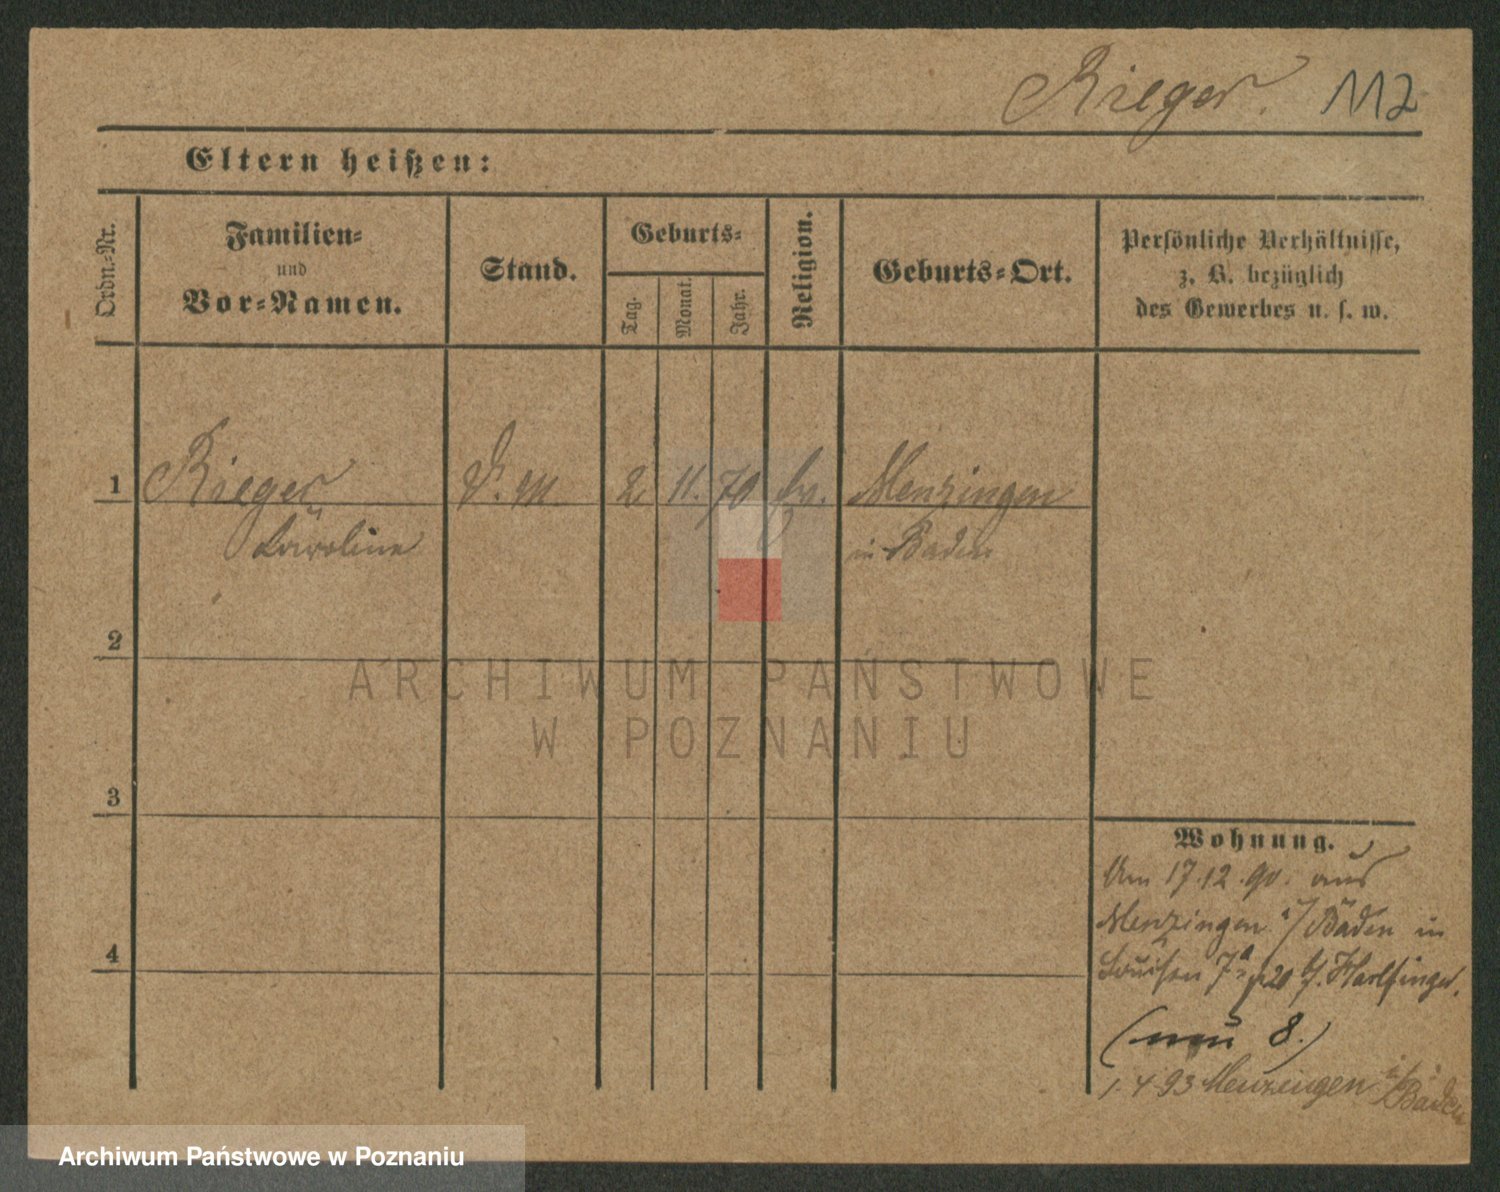 Rieger. 112
Eltern heißen:
Ordn.-Nr.
Familien-
und
Vor-Namen.
Stand.
Geburts-
Tag.
Monat.
Jahr.
Religion.
Geburts-Ort.
Persönliche Verhältnisse,
z. B. bezüglich
des Gewerbes u. s. w.
1 Rieger D. M. 2. 11. 70 ev. Menzingen
Karoline in Baden
2
ARCHIWUM PAŃSTWOWE
W POZNANIU
3
Wohnung.
Am 17.12.90. aus
Menzingen i/Baden in
4
Louisen 7a
(neu 8.)
1.4.93 Menzingen i/Baden
Archiwum Państwowe w Poznaniu